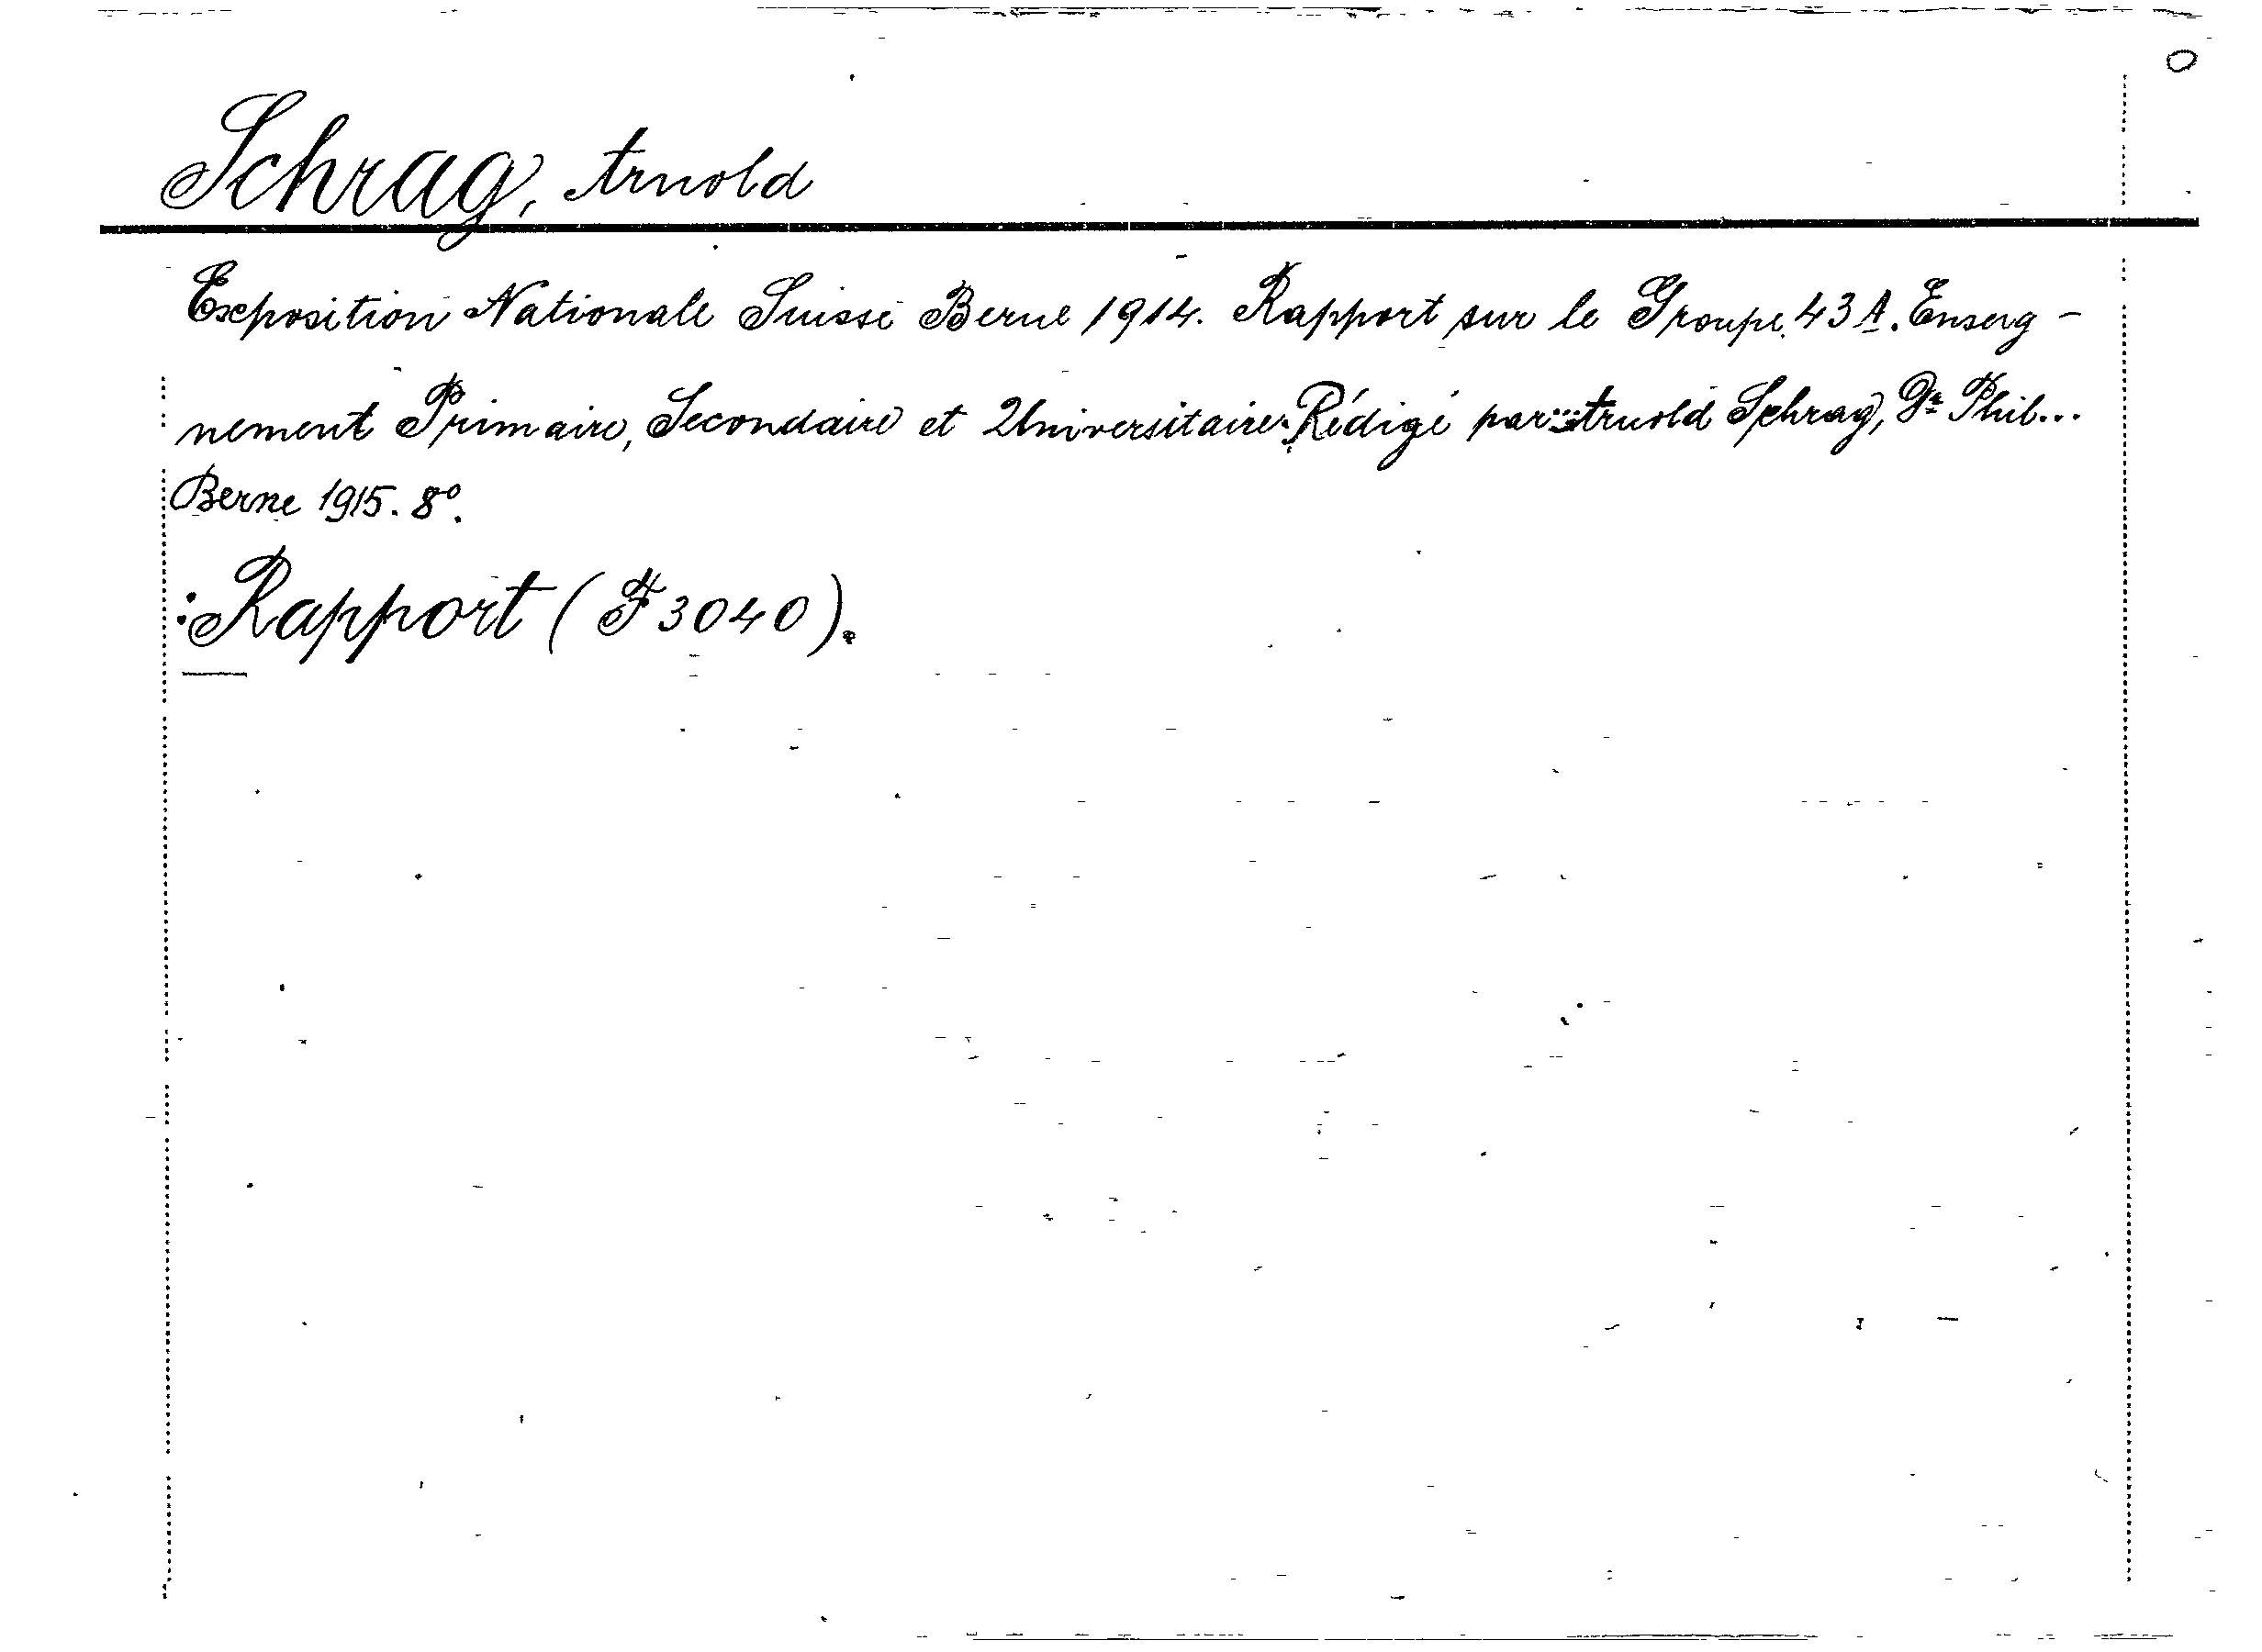 Schrag, Arnold
Exposition Nationale Suisse Berne 1914. Rapport sur le Groupe 43 A. Enseig-
nement Primaire, Secondaire et Universitaire. Rédigé par Arnold Schrag, Dr Phil...
Berne 1915. 8º.
: Rapport (F 3040).